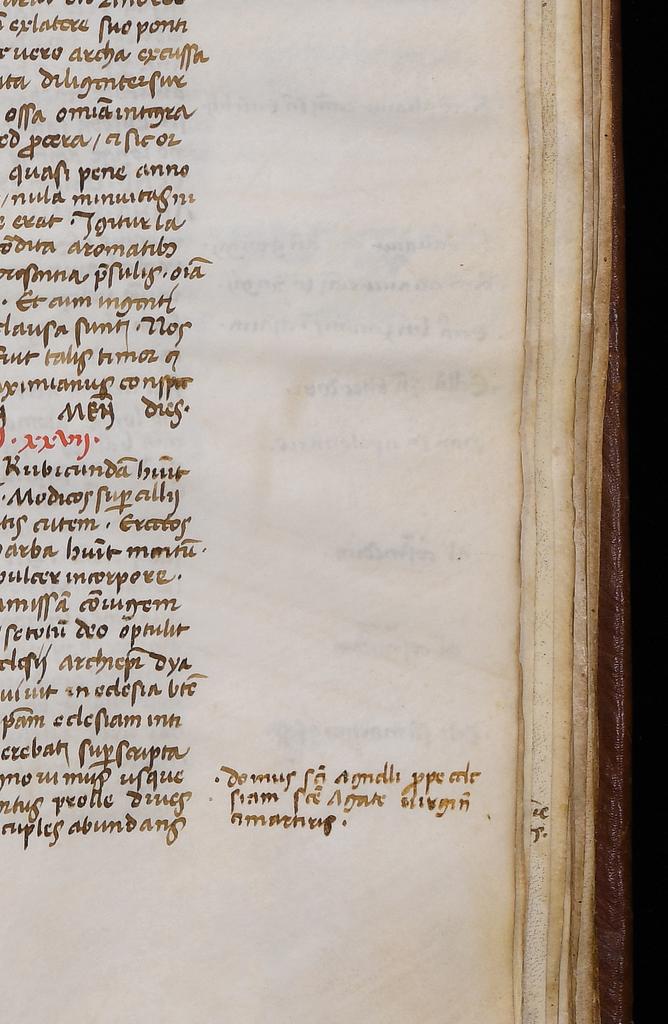 exlatere suo ponti
vero archa excussa
ta diligenter sur
ossa omīa integra
ed ꝓcera / ci sicor
quasi pene anno
/ nula minuitas ni
erat · Igitur la
cōdita aromatibꝫ
presentia p̄sulis · oīa
· Et cum ingenti
clausa sunt · Nos
Fuit talis timor q̄
aximianus conspic
MEN̄ dies ·
· xxvij ·
Rubicundā hūit
· Modicos suꝑcillij
tis cutem · Erectos
barba hūit mentū ·
pulcer in corpore ·
amissā cōiugem
se totū deo optulit
clesij archiep̄i dya
uiuit in eclesia btē
pām eclesiam inti
erebat suꝑscripta
gno uimus usque
ntus prolle diues
cuples abundans
· domus sc̄i Agnelli ꝓpe ecle
siam sc̄e Agate uirgin̄
et martiris ·